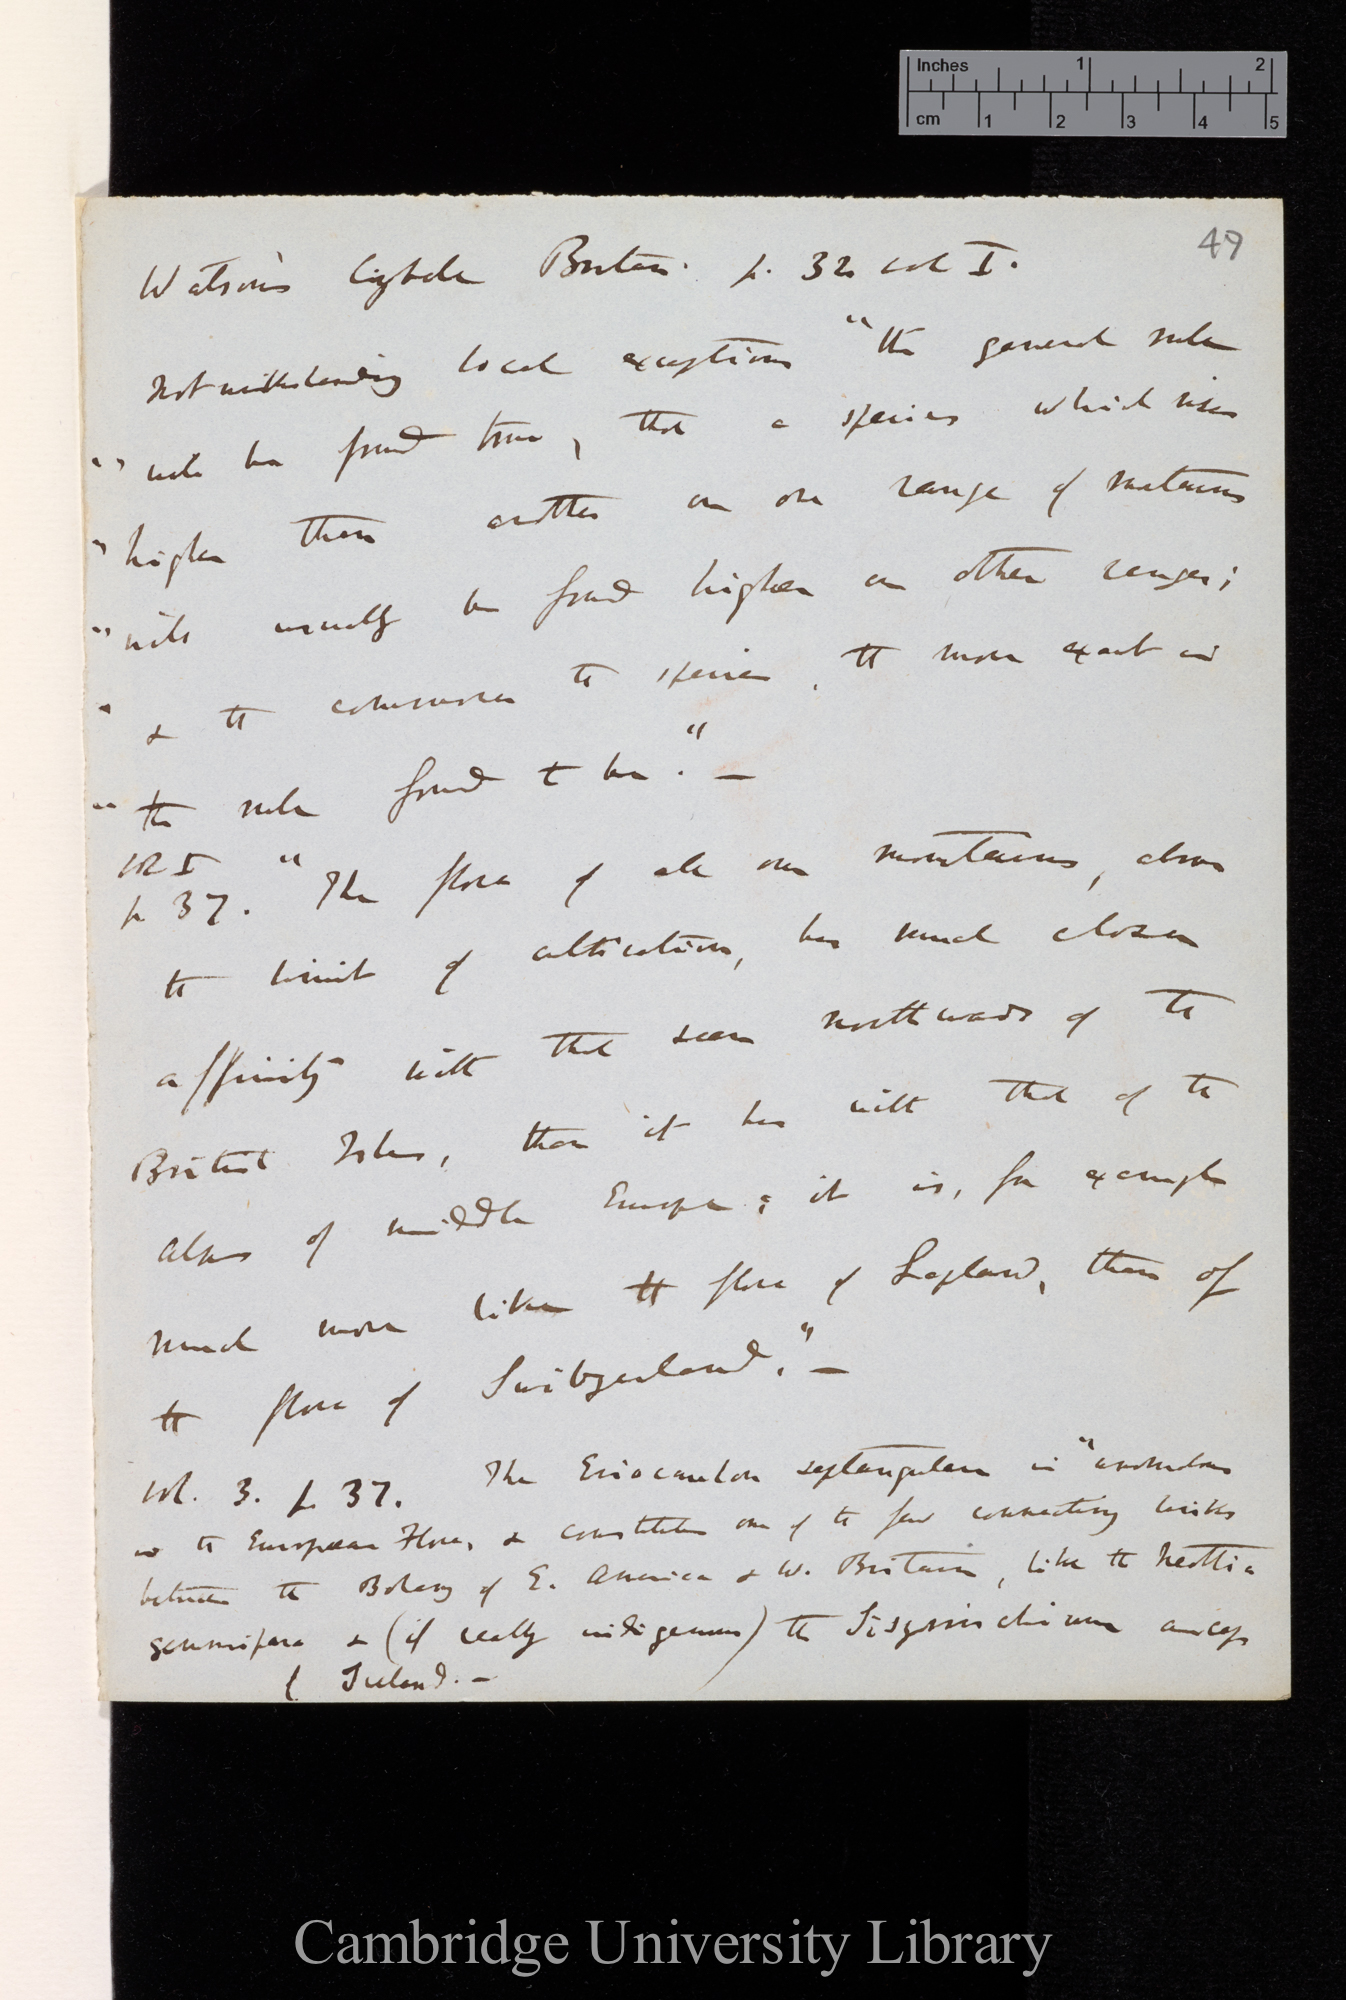 Inches 1 2
cm 1 2 3 4 5
49
Watson's Cybele Britan. p. 32 vol I.
Notwithstanding local exceptions "the general rule
" " will be found true, that a species which rises
" higher than another on one range of mountains
" will usually be found higher on other ranges;
" & the commoner the species, the more exact is
" the rule found to be." —
Vol I
p 37. "The flora of all our mountains, above
the limit of cultivation, has much closer
affinity with that seen northwards of the
British Isles, than it has with that of the
Alps of middle Europe; it is, for example
much more like the flora of Lapland, than of
the flora of Switzerland." —
vol. 3. p 37. The Eriocaulon septangulare is "anomalous
in the European Flora, & constitutes one of the few connecting links
between the Botany of E. America & W. Britain, like the Neottia
gemmipara & (if really indigenous) the Sisyrinchium anceps
of Ireland. —
Cambridge University Library